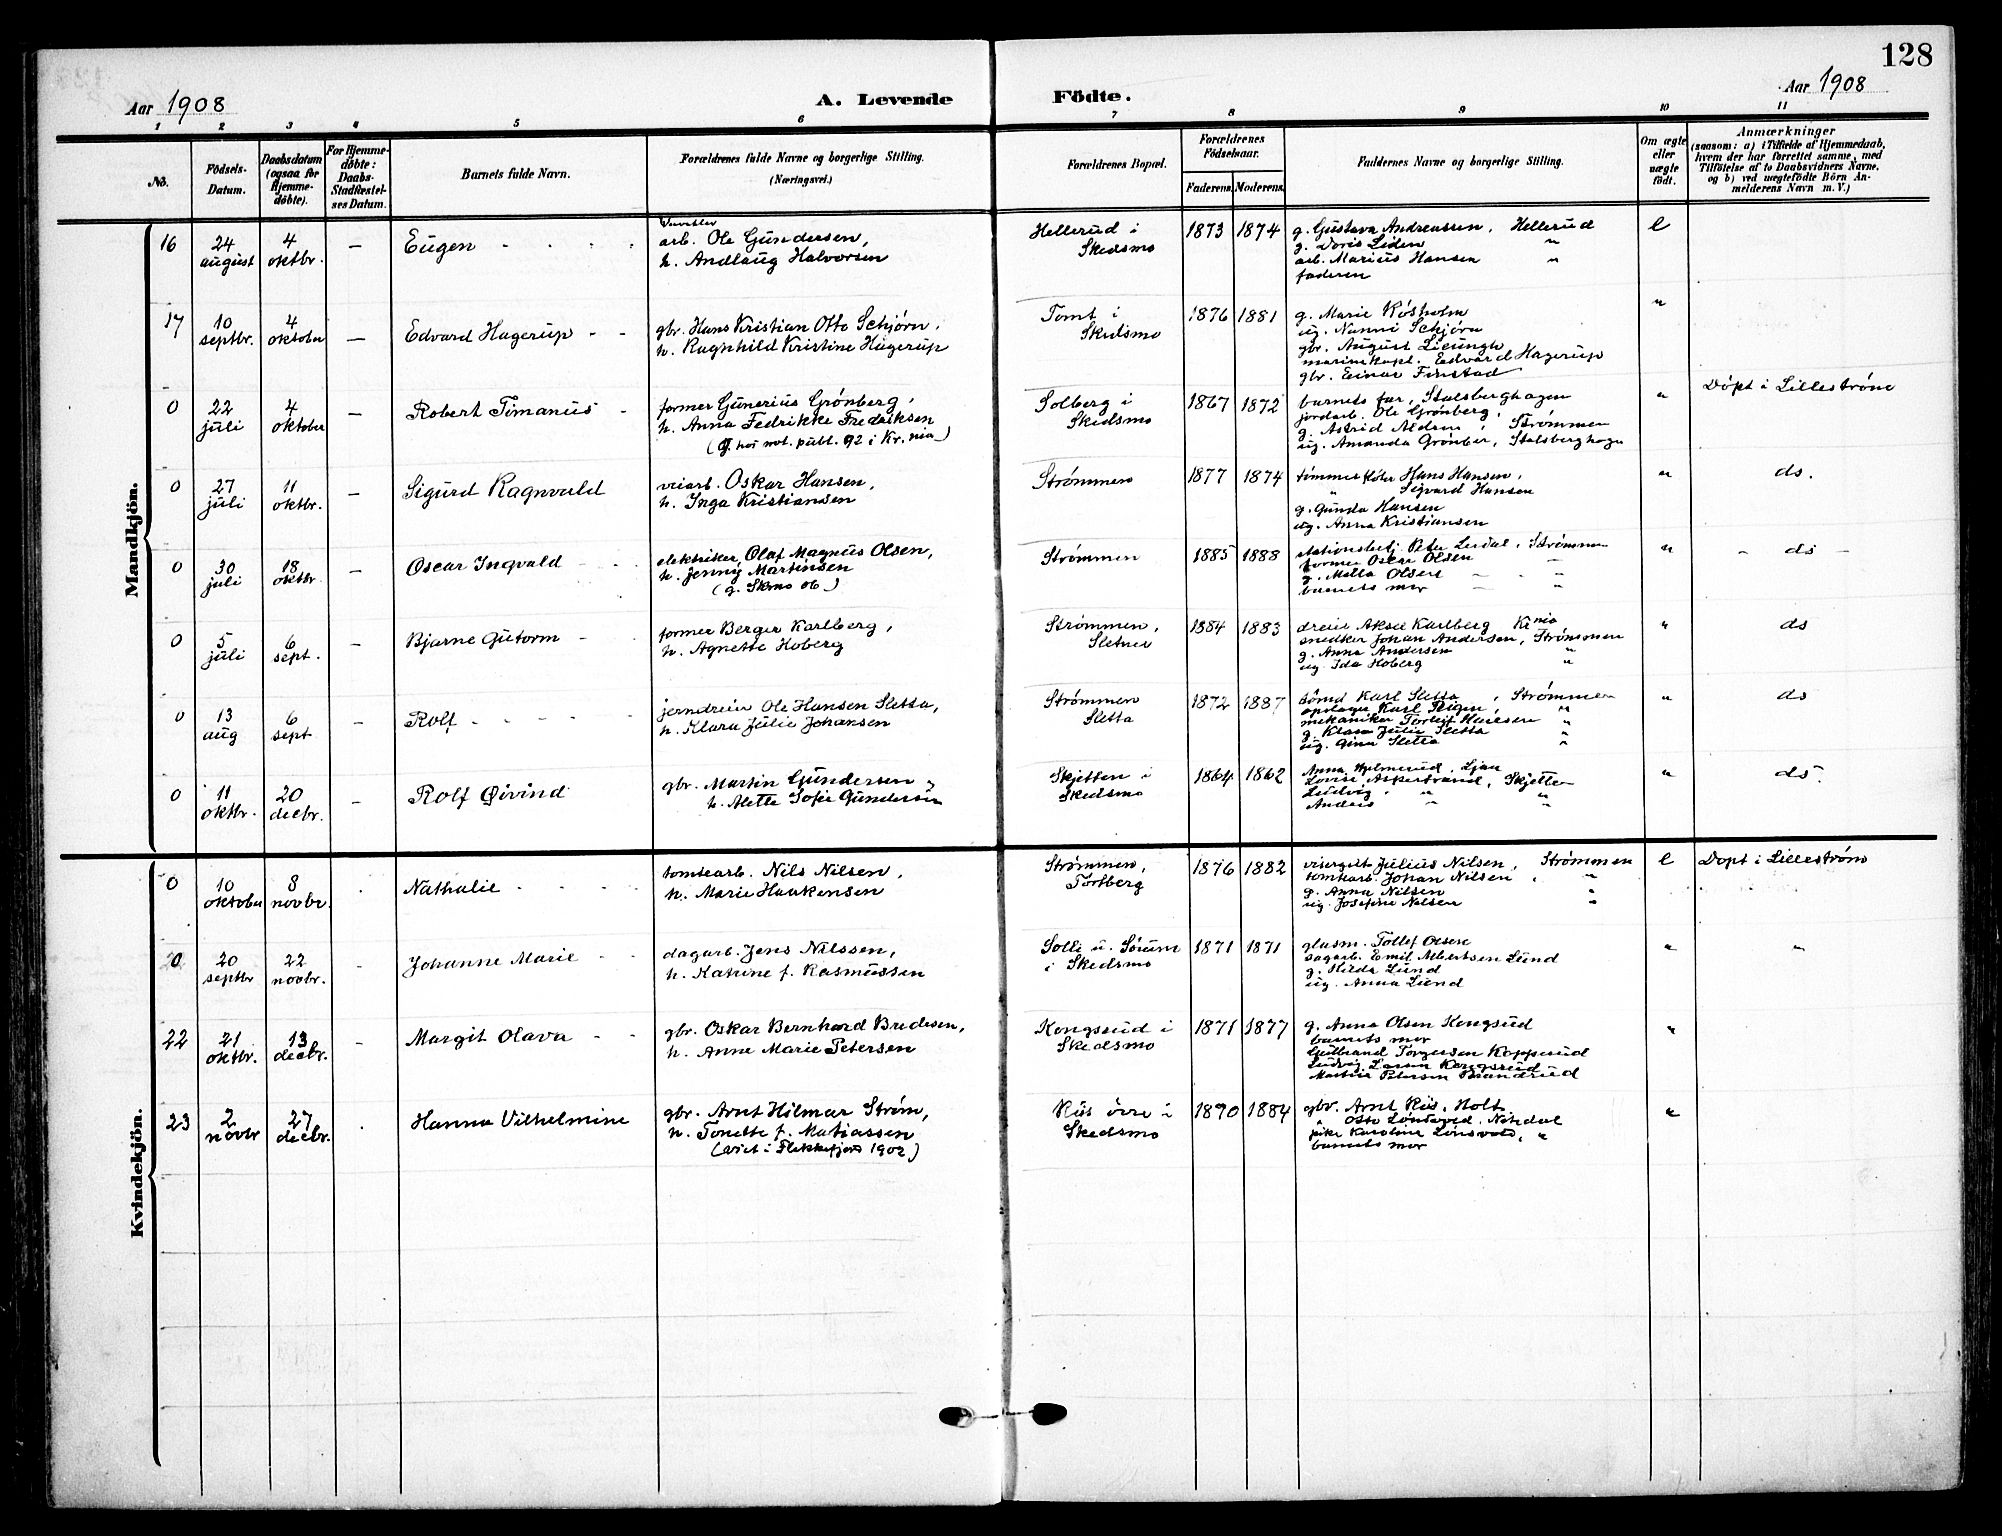 128
Aar 1908
A. Levende Födte.
Aar 1908
1 2 3 4 5 6 7 8 9 10 11
No.
Födsels-
Datum.
Daabsdatum
(ogsaa for
Hjemme-
döbte).
For Hjemme-
döbte:
Daabs-
Stadfæstel-
ses Datum.
Barnets fulde Navn.
Forældrenes fulde Navne og borgerlige Stilling.
(Næringsvei.)
Forældrenes Bopæl.
Forældrenes
Födselsaar.
Faderens. Moderens.
Faddernes Navne og borgerlige Stilling.
Om ægte
eller
uægte
født.
Anmærkninger
(saasom: a) i Tilfælde af Hjemmedaab,
hvem der har forrettet samme, med
Tilföielse af to Daabsvidners Navne,
og b) ved uægtefödte Börn An-
melderens Navn m. V.)
Mandkjön.
16 24 august 4 oktbr. — Eugen
arb. Ole Gundersen,
h. Andlaug Halvorsen
Hellerud i
Skedsmo
1873 1874
g. Gustava Andreassen, Hellerud
g. Doris Liden "
arb. Marius Hansen "
faderen
e
17 10 septbr. 4 oktober — Edvard Hagerup
gbr. Hans Kristian Otto Schjørn,
h. Ragnhild Kristine Hagerup
Tomt i
Skedsmo
1876 1881
g. Marie Rosholm
ug. Nanni Schjørn
gbr. August Lieungh
marinekapt. Edvard Hagerup
gbr. Einar Finstad
"
0 22 juli 4 oktober — Robert Timanus
former Gunerius Grönberg,
h. Anna Fedrikke Fredriksen
(g. hos not. publ. 92 i Kr.nia)
Solberg i
Skedsmo
1867 1872
barnets far, Stalsberghagen
jordarb. Ole Grönberg,
g. Astrid Aldrin, Strømmen
ug. Amanda Grönber, Stalsberghagen
"
Döpt i Lilleström
0 27 juli 11 oktbr. — Sigurd Ragnvald
veiarb. Oskar Hansen,
h. Inga Kristiansen
Strømmen
1877 1874
Hans Hansen,
" Sigvard Hansen
g. Gunda Hansen
ug. Anna Kristiansen
"
ds.
0 30 juli 18 oktbr. — Oscar Ingvald
elektriker, Olaf Magnus Olsen,
h. Jenny Martinsen
(g. Skmo 06)
Strømmen
1885 1883
stationsbetj. Peter Lerdal, Strømmen
former Oscar Olsen
g. Metta Olsen
barnets mor
"
- ds -
0 5 juli 6 sept. — Bjarne Gutorm
former Berger Karlberg,
h. Agnette Hoberg
Strømmen,
Sletner
1884 1883
dreier Aksel Karlberg Kr.nia
snedker Johan Andersen, Strømmen
g. Anna Andersen "
ug. Ida Hoberg "
"
ds
0 13 aug 6 sept — Rolf
jerndreier Ole Hansen Sletta,
h. Klara Julie Johansen
Strømmen
Sletta
1872 1887
Karl Sletta, Strømmen
Karl "
mekaniker Torleif Hansen "
g. Klara Julie Sletta "
ug. Gina Sletta "
"
ds
0 11 oktbr. 20 decbr. — Rolf Øivind
gbr. Martin Gundersen
h. Alette Sofie Gundersen
Skjetten i
Skedsmo
1864 1862
Anna Hjelmerud, Ljan
Lovise Askerstrand, Skjetten
Ludvig " "
Anders " "
"
ds.
Kvindekjön.
0 10 oktober 8 novbr. Nathalie
tomtearb. Nils Nilsen,
h. Marie Haakensen
Strømmen,
Torlberg
1876 1882
visergut Julius Nilsen, Strømmen
tomtarb. Johan Nilsen, "
g. Anna Nilsen "
ug. Josefine Nilsen "
e
Döpt i Lilleström
20 20 septbr 22 novbr. Johanne Marie
dagarb. Jens Nilssen,
h. Katrine f. Rasmussen
Solli u. Sörum
i Skedsmo
1871 1871
glasm. Tollef Olsen
sagarb. Emil Albertsen Lund
g. Hilda Lund
ug. Anna Lund
"
"
22 21 oktbr. 13 decbr. Margit Olava
gbr. Oskar Bernhard Bredesen,
h. Anne Marie Petersen
Kongsrud i
Skedsmo
1871 1877
g. Anna Olsen Kongsrud
barnets mor
Gulbrand Torgersen Kopperud
Ludvig Larsen Kongsrud
Petersen Brandrud
"
23 2 novbr 27 decbr. Hanna Vilhelmine
gbr. Arnt Hilmar Strøm,
h. Tonette f. Matiassen
(viet i Flekkefjord 1902)
Riis övre i
Skedsmo
1890 1884
gbr. Arnt Riis, Holt
" Otto, Nitedal
pike Karoline Lönsvold, "
barnets mor
"